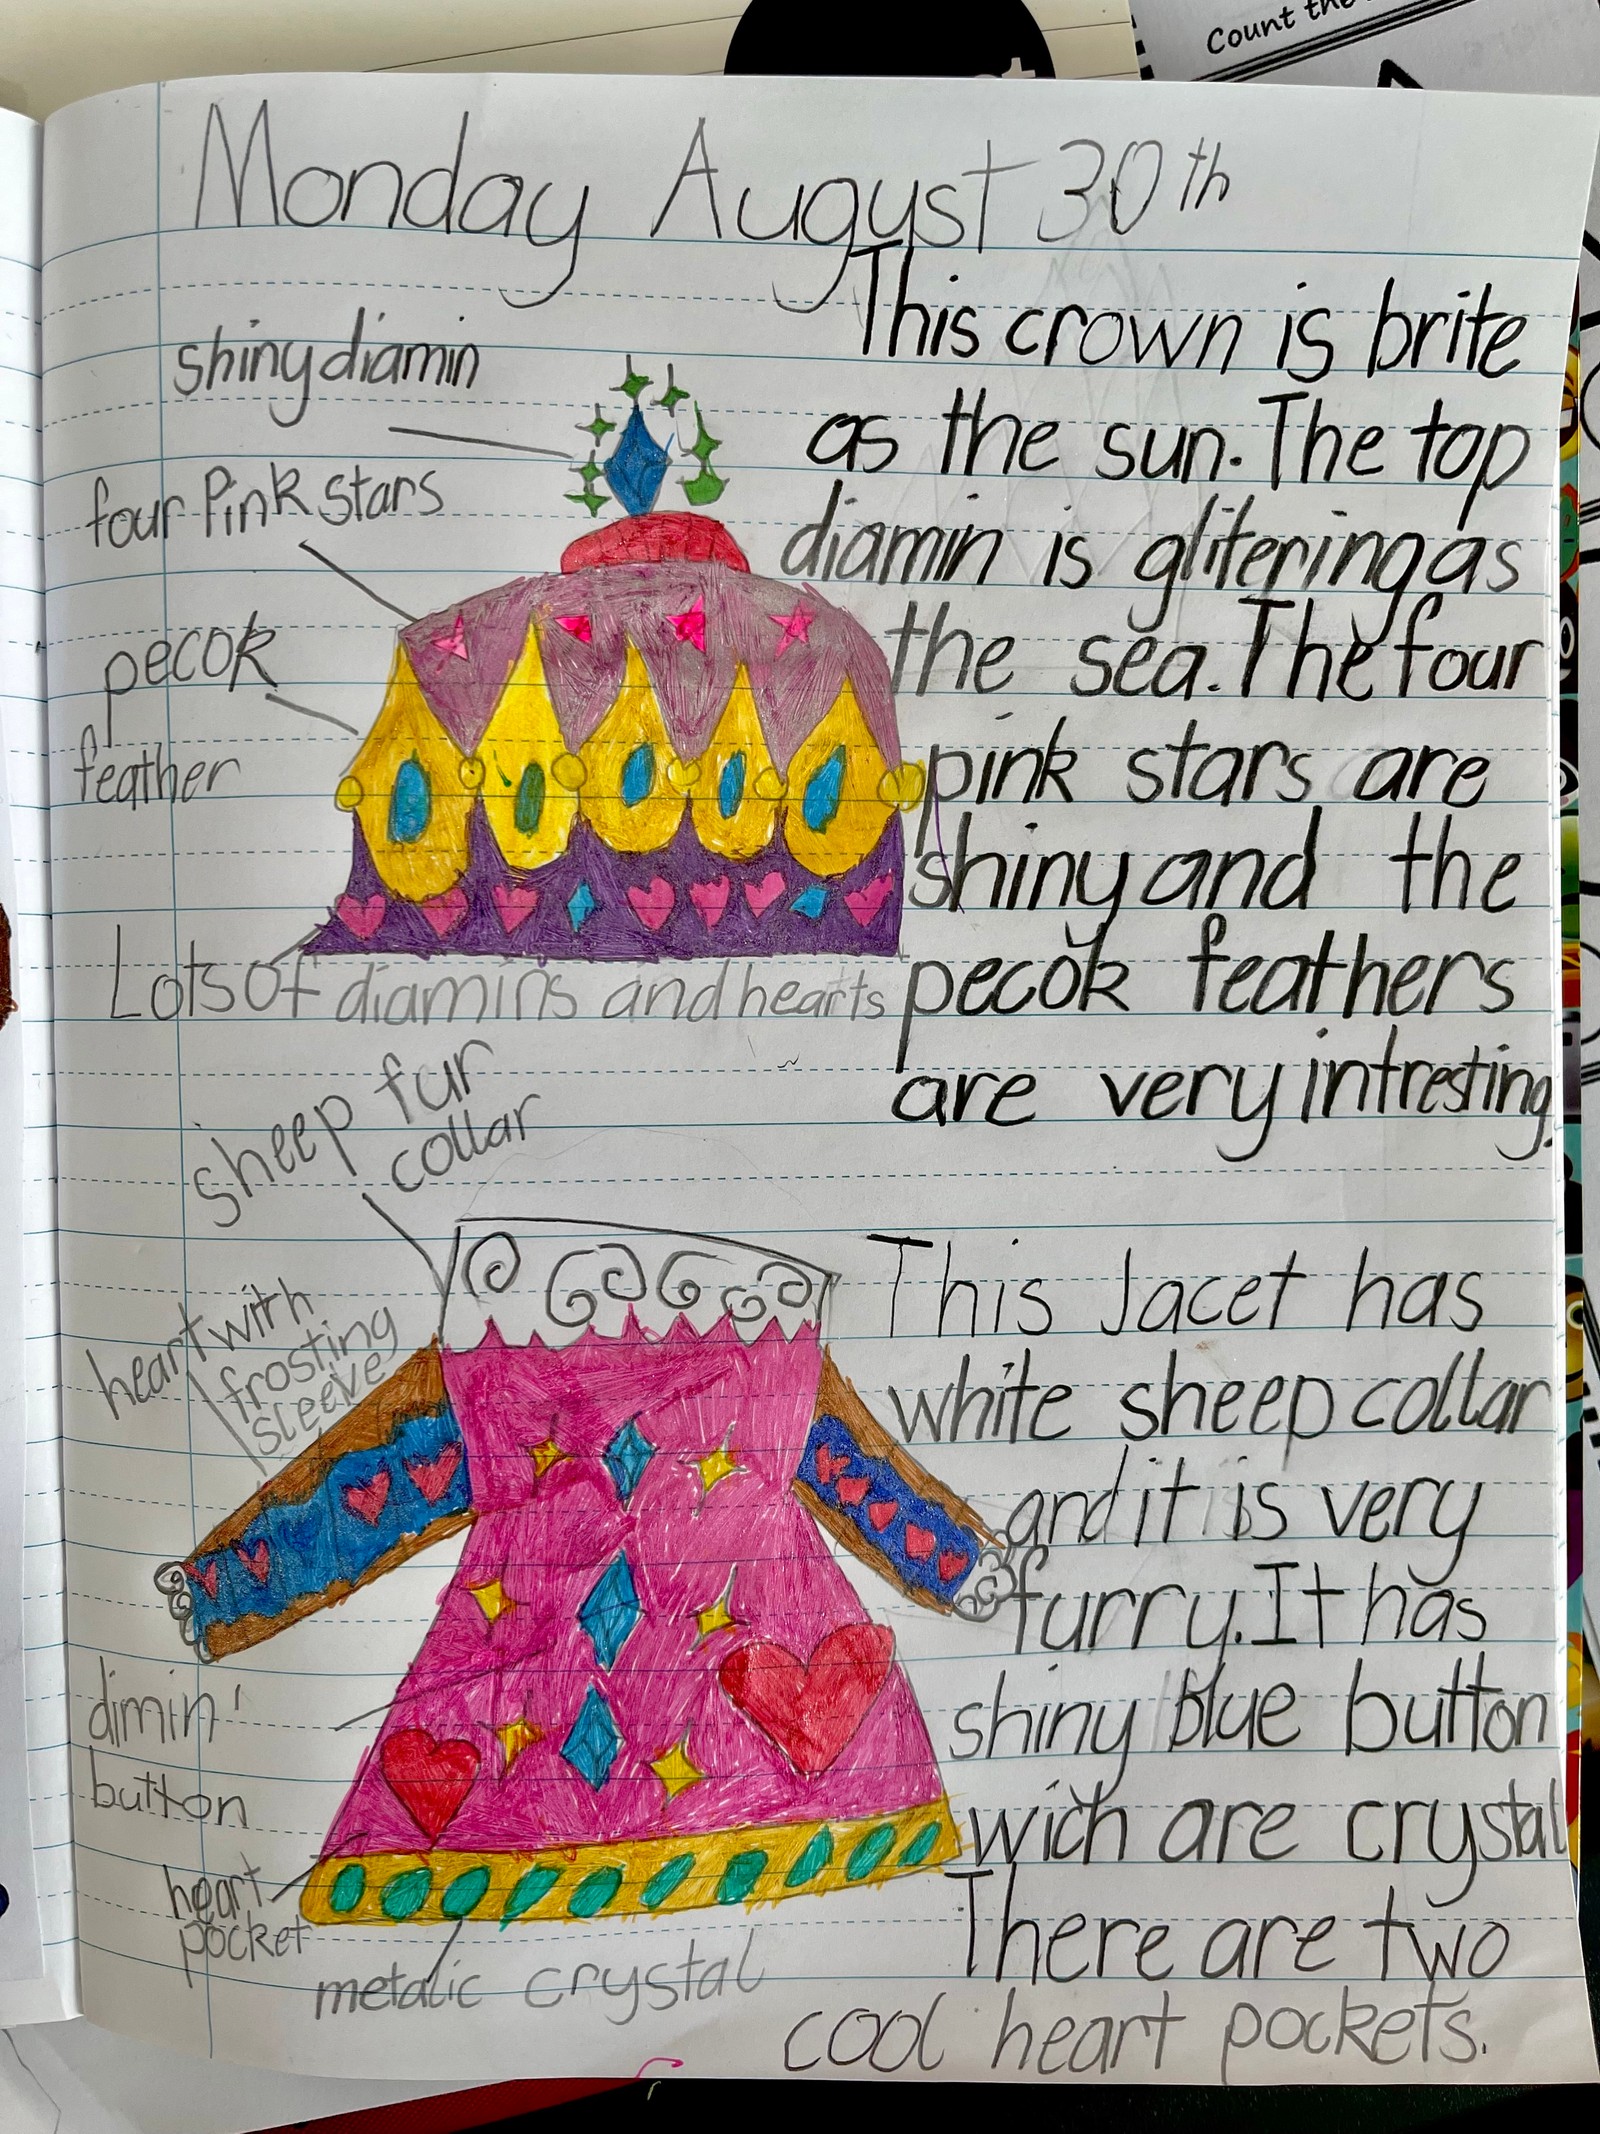 Count the
Monday August 30th
shiny diamin
four Pink stars
pecok
feather
Lots of diamins and hearts
This crown is brite
as the sun. The top
diamin is glitering as
the sea. The four
pink stars are
shiny and the
pecok feathers
are very intresting.
sheep fur
collar
heart with
frosting
sleeve
dimin
button
heart
pocket
metalic crystal
This Jacet has
white sheep collar
and it is very
furry. It has
shiny blue button
wich are crystal
There are two
cool heart pockets.